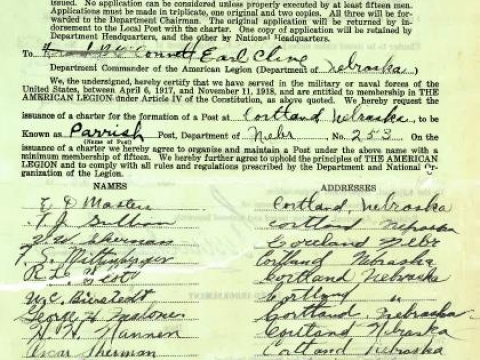 issued. No application can be considered unless properly executed by at least fifteen men.
Applications must be made in triplicate, one original and two copies. All three will be for-
warded to the Department Chairman. The original application will be returned by in-
dorsement to the Local Post with the charter. One copy of application will be retained by
Department Headquarters, and the other by National Headquarters.
To Earl Cline
Department Commander of the American Legion (Department of Nebraska)
We, the undersigned, hereby certify that we have served in the military or naval forces of the
United States, between April 6, 1917, and November 11, 1918, and are entitled to membership in THE
AMERICAN LEGION under Article IV of the Constitution, as above quoted. We hereby request the
issuance of a charter for the formation of a Post at Cortland Nebraska, to be
Known as Parrish Post, Department of Nebr No. 253 On the
(Name of Post)
issuance of a charter we hereby agree to organize and maintain a Post under the above name with a
minimum membership of fifteen. We hereby further agree to uphold the principles of THE AMERICAN
LEGION and to comply with all rules and regulations prescribed by the Department and National Or-
ganization of the Legion.
NAMES ADDRESSES
E D Masters Cortland, Nebraska
T. J. Cortland Nebraska
Sherman Cortland Nebr
T. S. Cortland Nebraska
R. L. Cortland Nebraska
W. C. Bierstedt Cortland "
George H Cortland, Nebraska
H. H. Lannen Cortland Nebraska
Oscar Sherman Cortland Nebraska